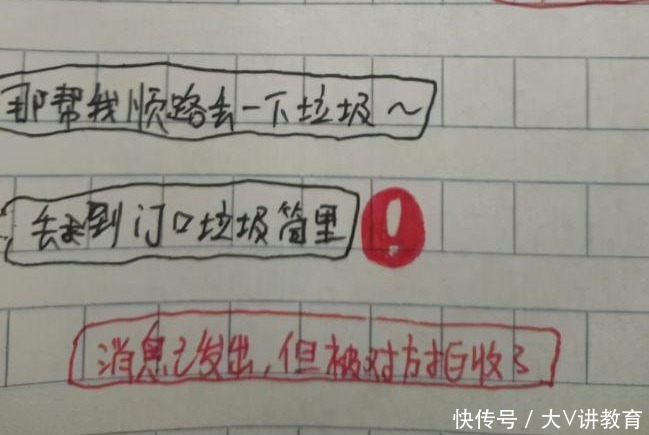 那帮我顺路丢一下垃圾～
丢到门口垃圾筒里！
消息已发出,但被对方拒收了
快传号 / 大V讲教育